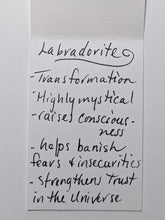 Labradorite
-Transformation
-Highly mystical
-raises conscious-
ness
- helps banish
fears & insecurities
- strengthens trust
in the Universe